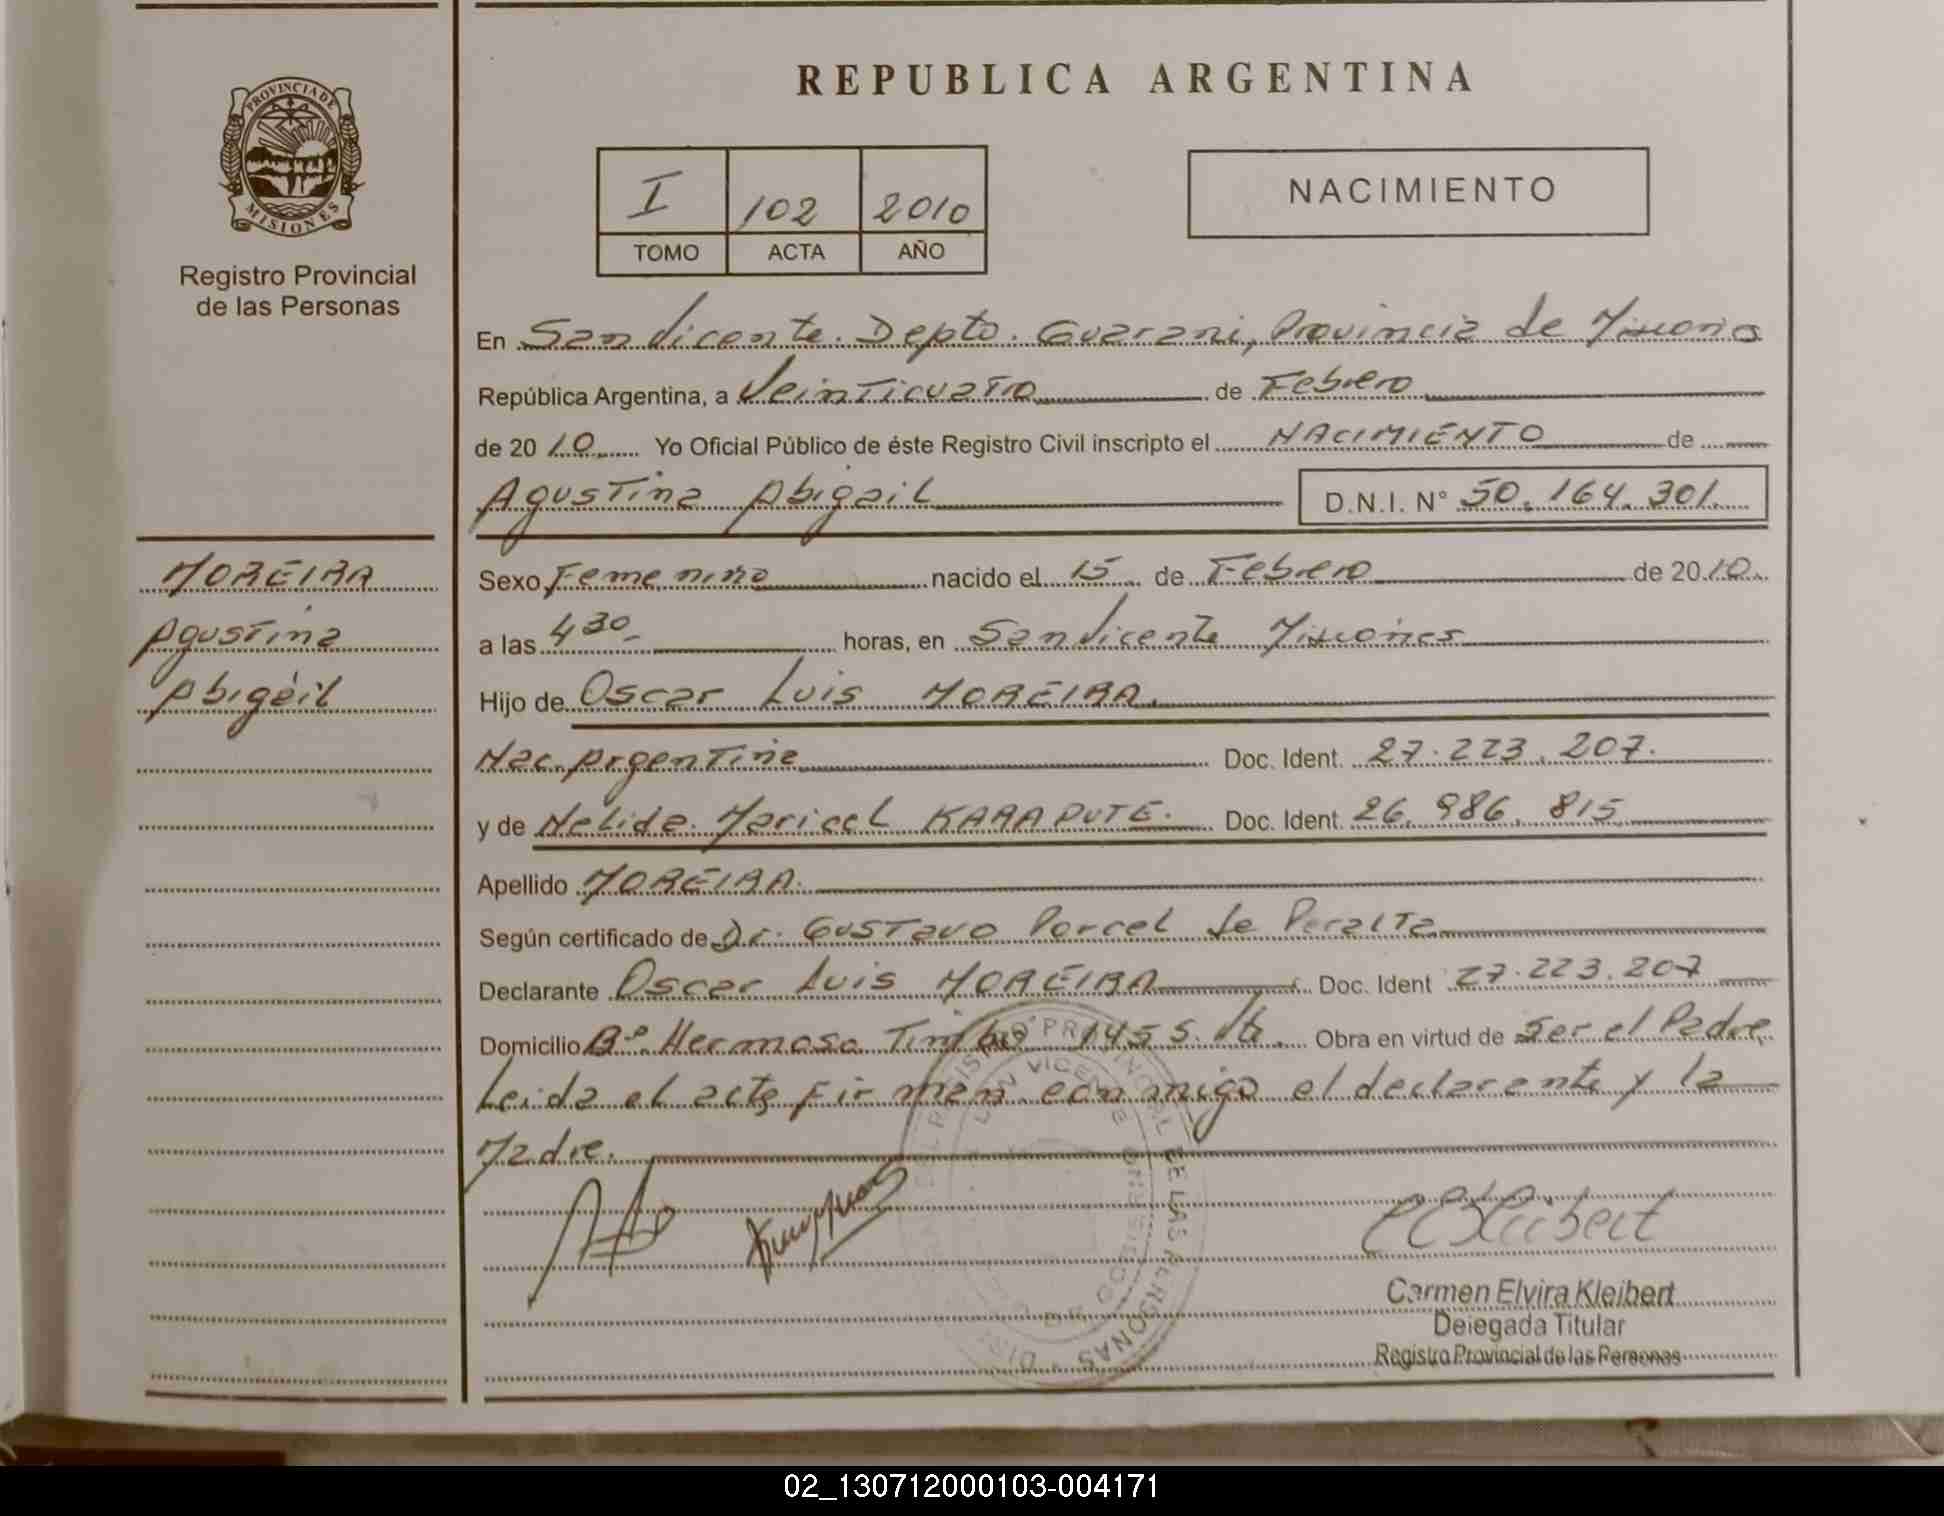 REPUBLICA ARGENTINA
PROVINCIA DE
MISIONES
Registro Provincial
de las Personas
I 102 2010
TOMO ACTA AÑO
NACIMIENTO
En San Vicente. Depto. Guarani, Provincia de Misiones
República Argentina, a Veinticuatro de Febrero
de 2010 Yo Oficial Público de éste Registro Civil inscripto el NACIMIENTO de
Agustina Abigail D.N.I. N° 50.164.301.
MOREIRA
Agustina
Abigail
Sexo Femenino nacido el 15 de Febrero de 2010
a las 4 30 horas, en San Vicente Misiones
Hijo de Oscar Luis MOREIRA.
Nac. Argentina Doc. Ident. 27.223.207.
y de Nelida Maricel KARAPUTE. Doc. Ident. 26.986.815
Apellido MOREIRA.
Según certificado de Dr. Gustavo Porcel de Peralta
Declarante Oscar Luis MOREIRA Doc. Ident 27.223.207
Domicilio Bº. Hermoso Timbo 1455. Obra en virtud de Ser el Padre
Leida el acta firman conmigo el declarante y la
Madre.
SAN VICENTE
DE LAS PERSONAS
Carmen Elvira Kleibert
Delegada Titular
Registro Provincial de las Personas
02_130712000103-004171